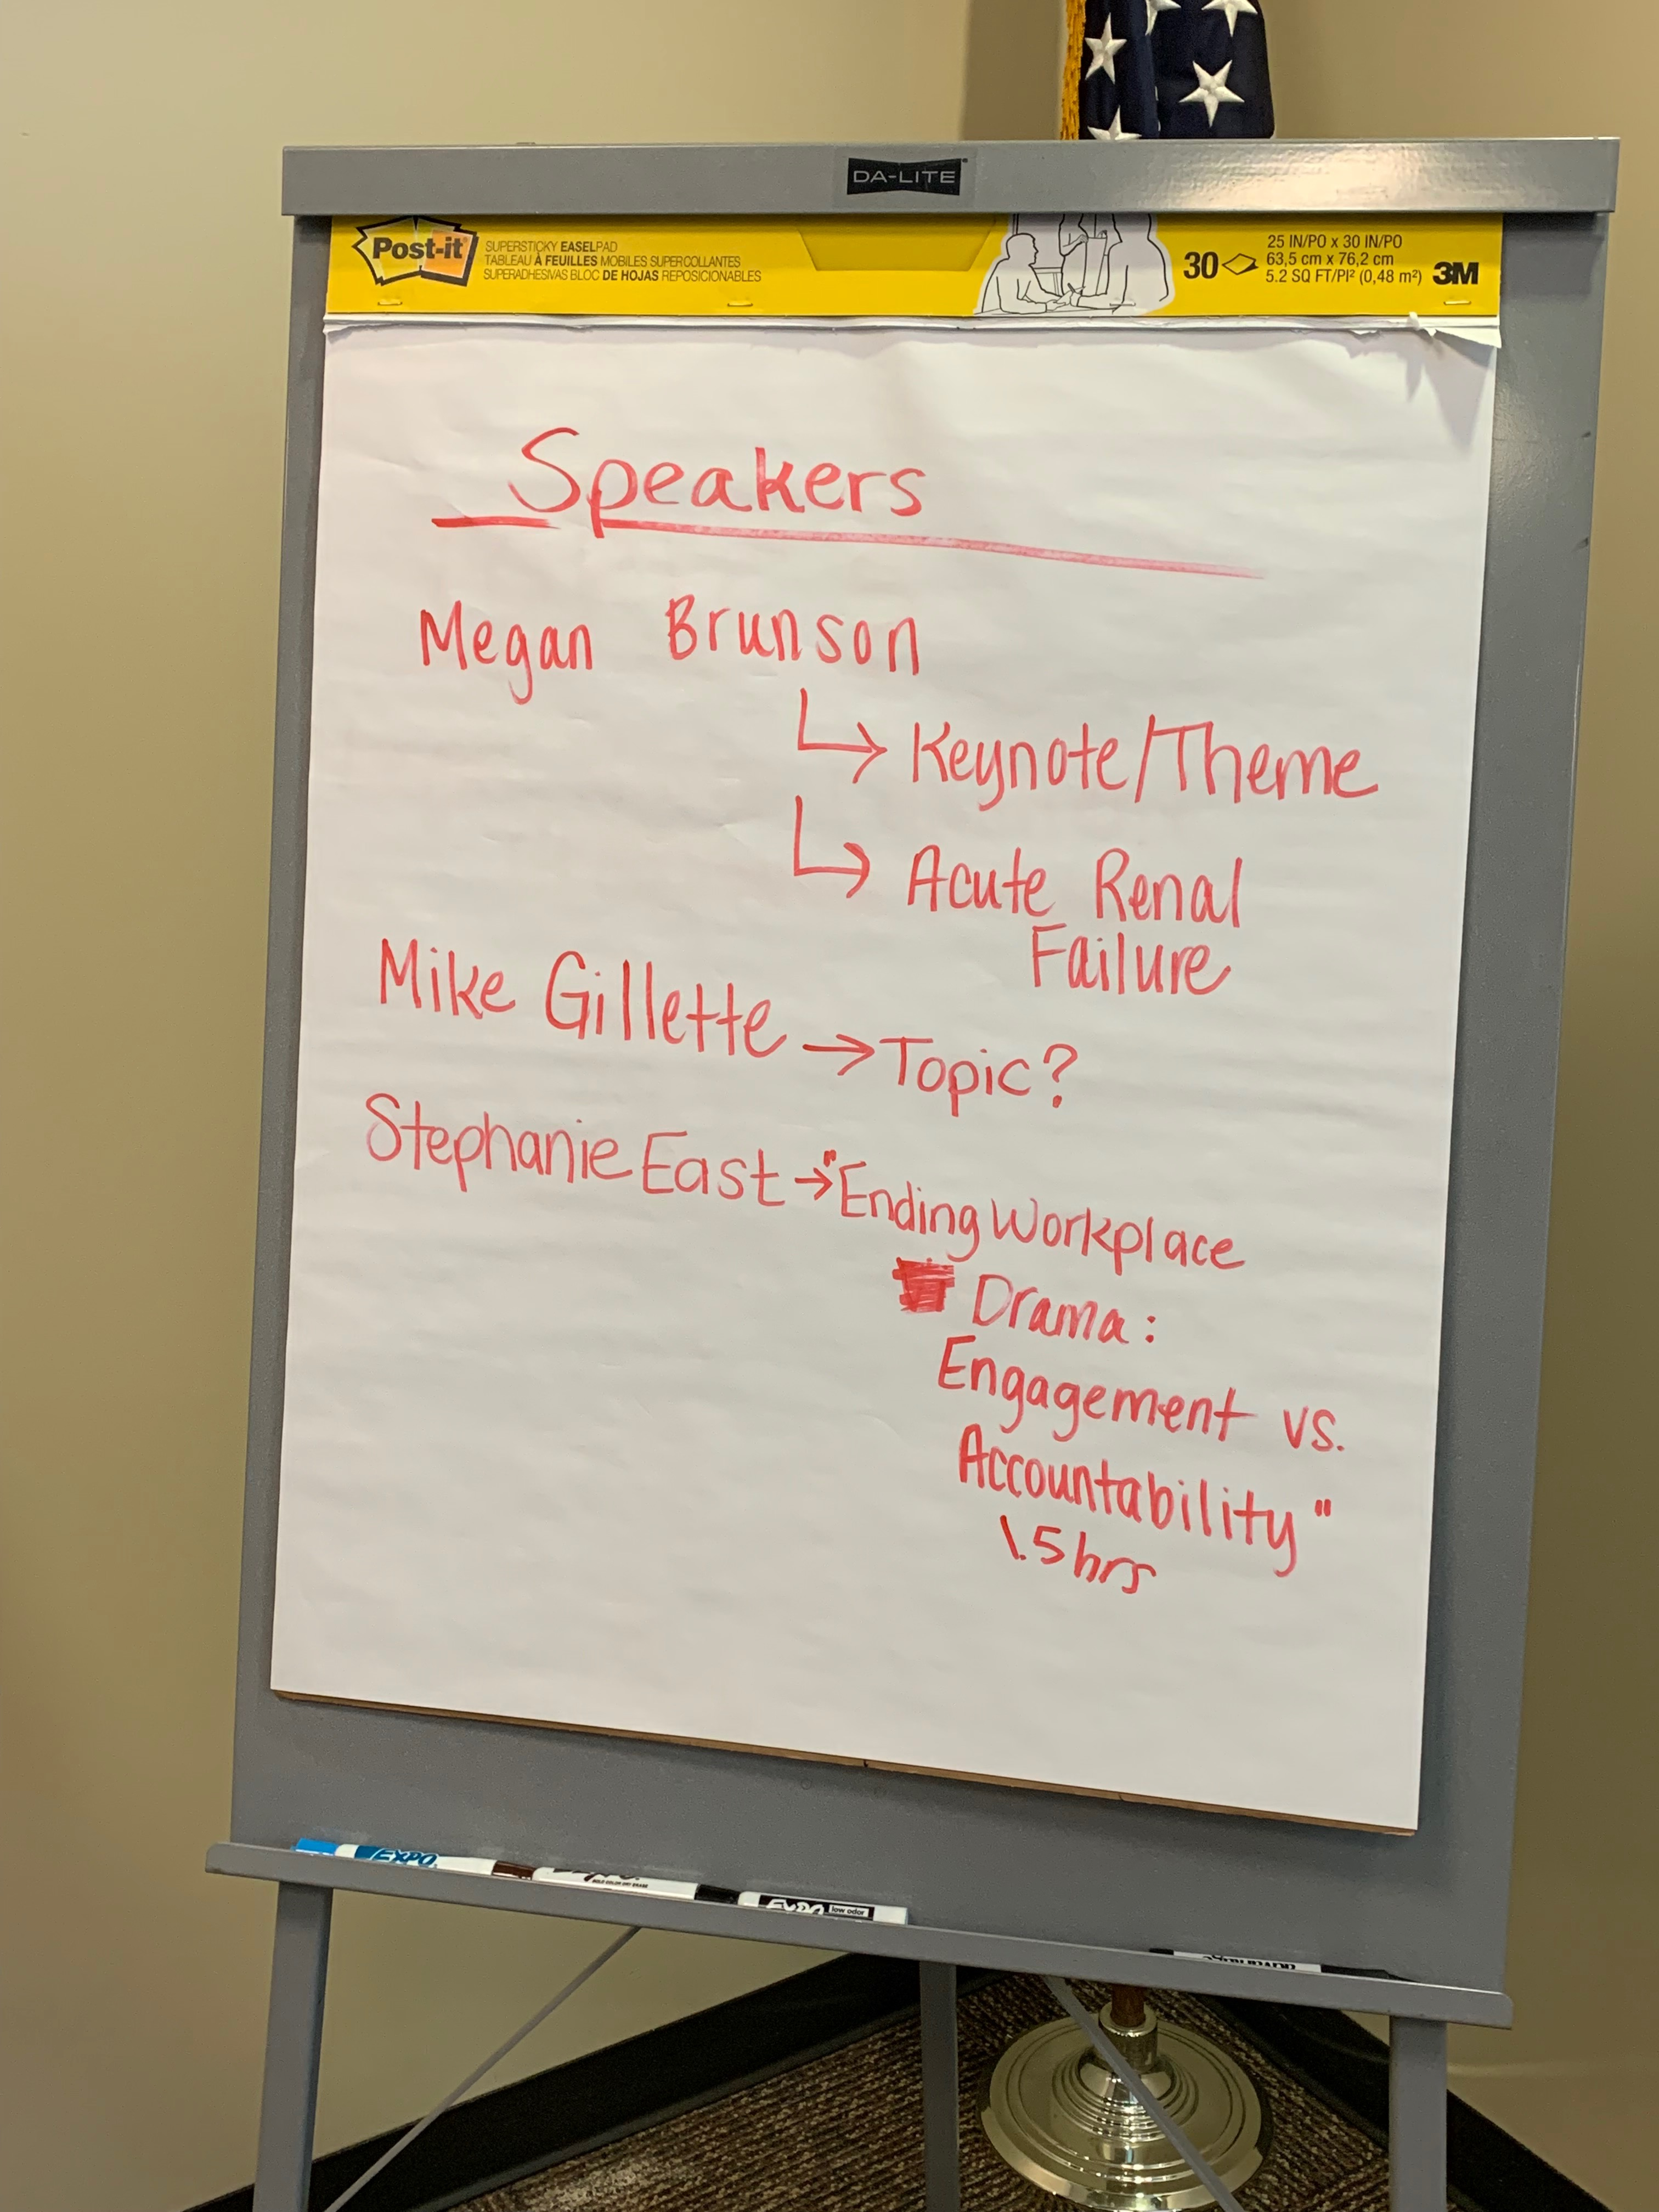 DA-LITE
Post-it
SUPERSTICKY EASELPAD
TABLEAU À FEUILLES MOBILES SUPERCOLLANTES
SUPERADHESIVAS BLOC DE HOJAS REPOSICIONABLES
30
25 IN/PO x 30 IN/PO
63,5 cm x 76,2 cm
5.2 SQ FT/PI² (0,48 m²)
3M
Speakers
Megan Brunson
↳ Keynote/Theme
↳ Acute Renal
Failure
Mike Gillette → Topic?
Stephanie East → "Ending Workplace
Drama:
Engagement vs.
Accountability"
1.5 hrs
EXPO
EXPO
low odor